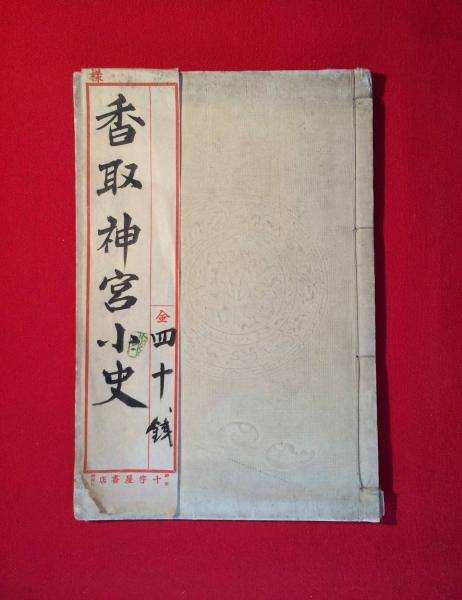 様
香取神宮小史
金四十、錢
十字屋書店